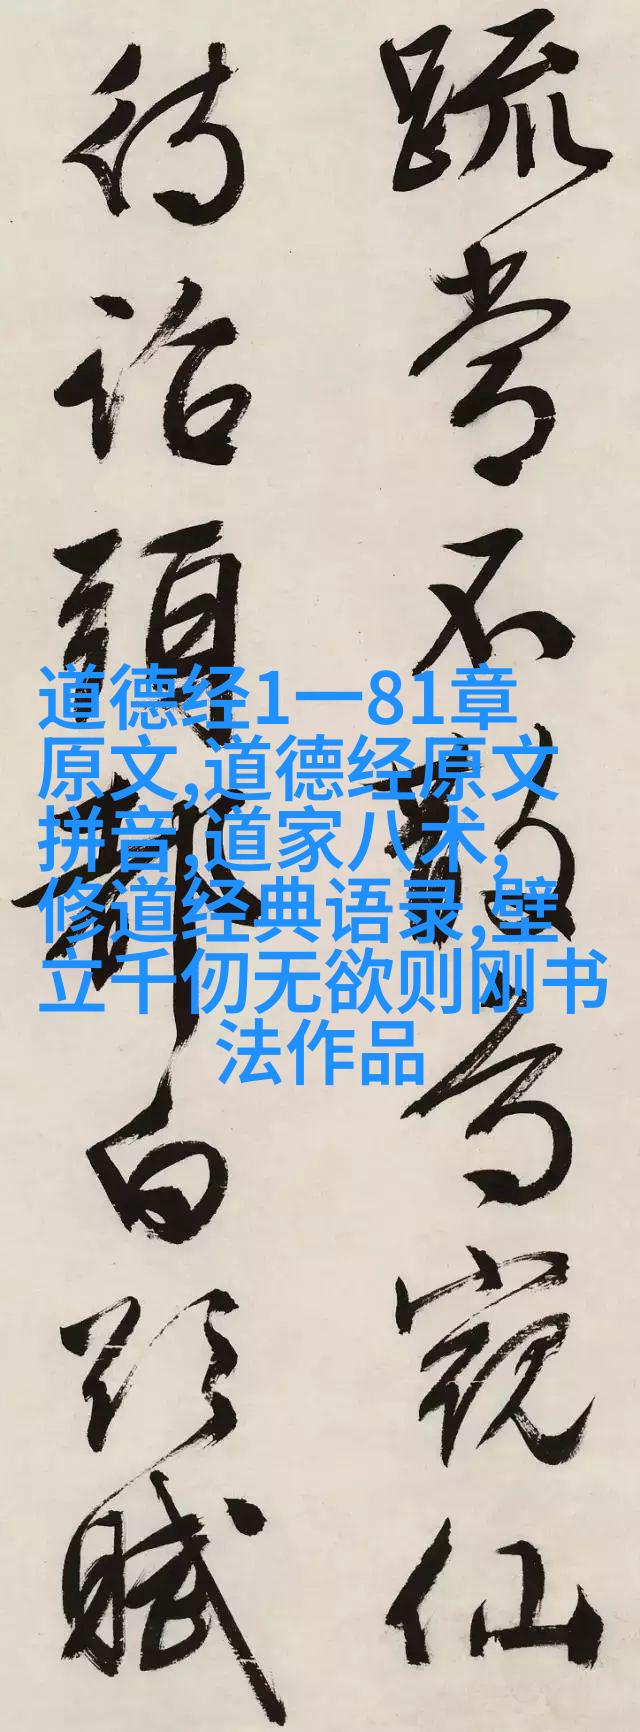 疏常不仙
待詔頭都白賦
道德经1一81章
原文,道德经原文
拼音,道家八术,
修道经典语录,壁
立千仞无欲则刚书
法作品